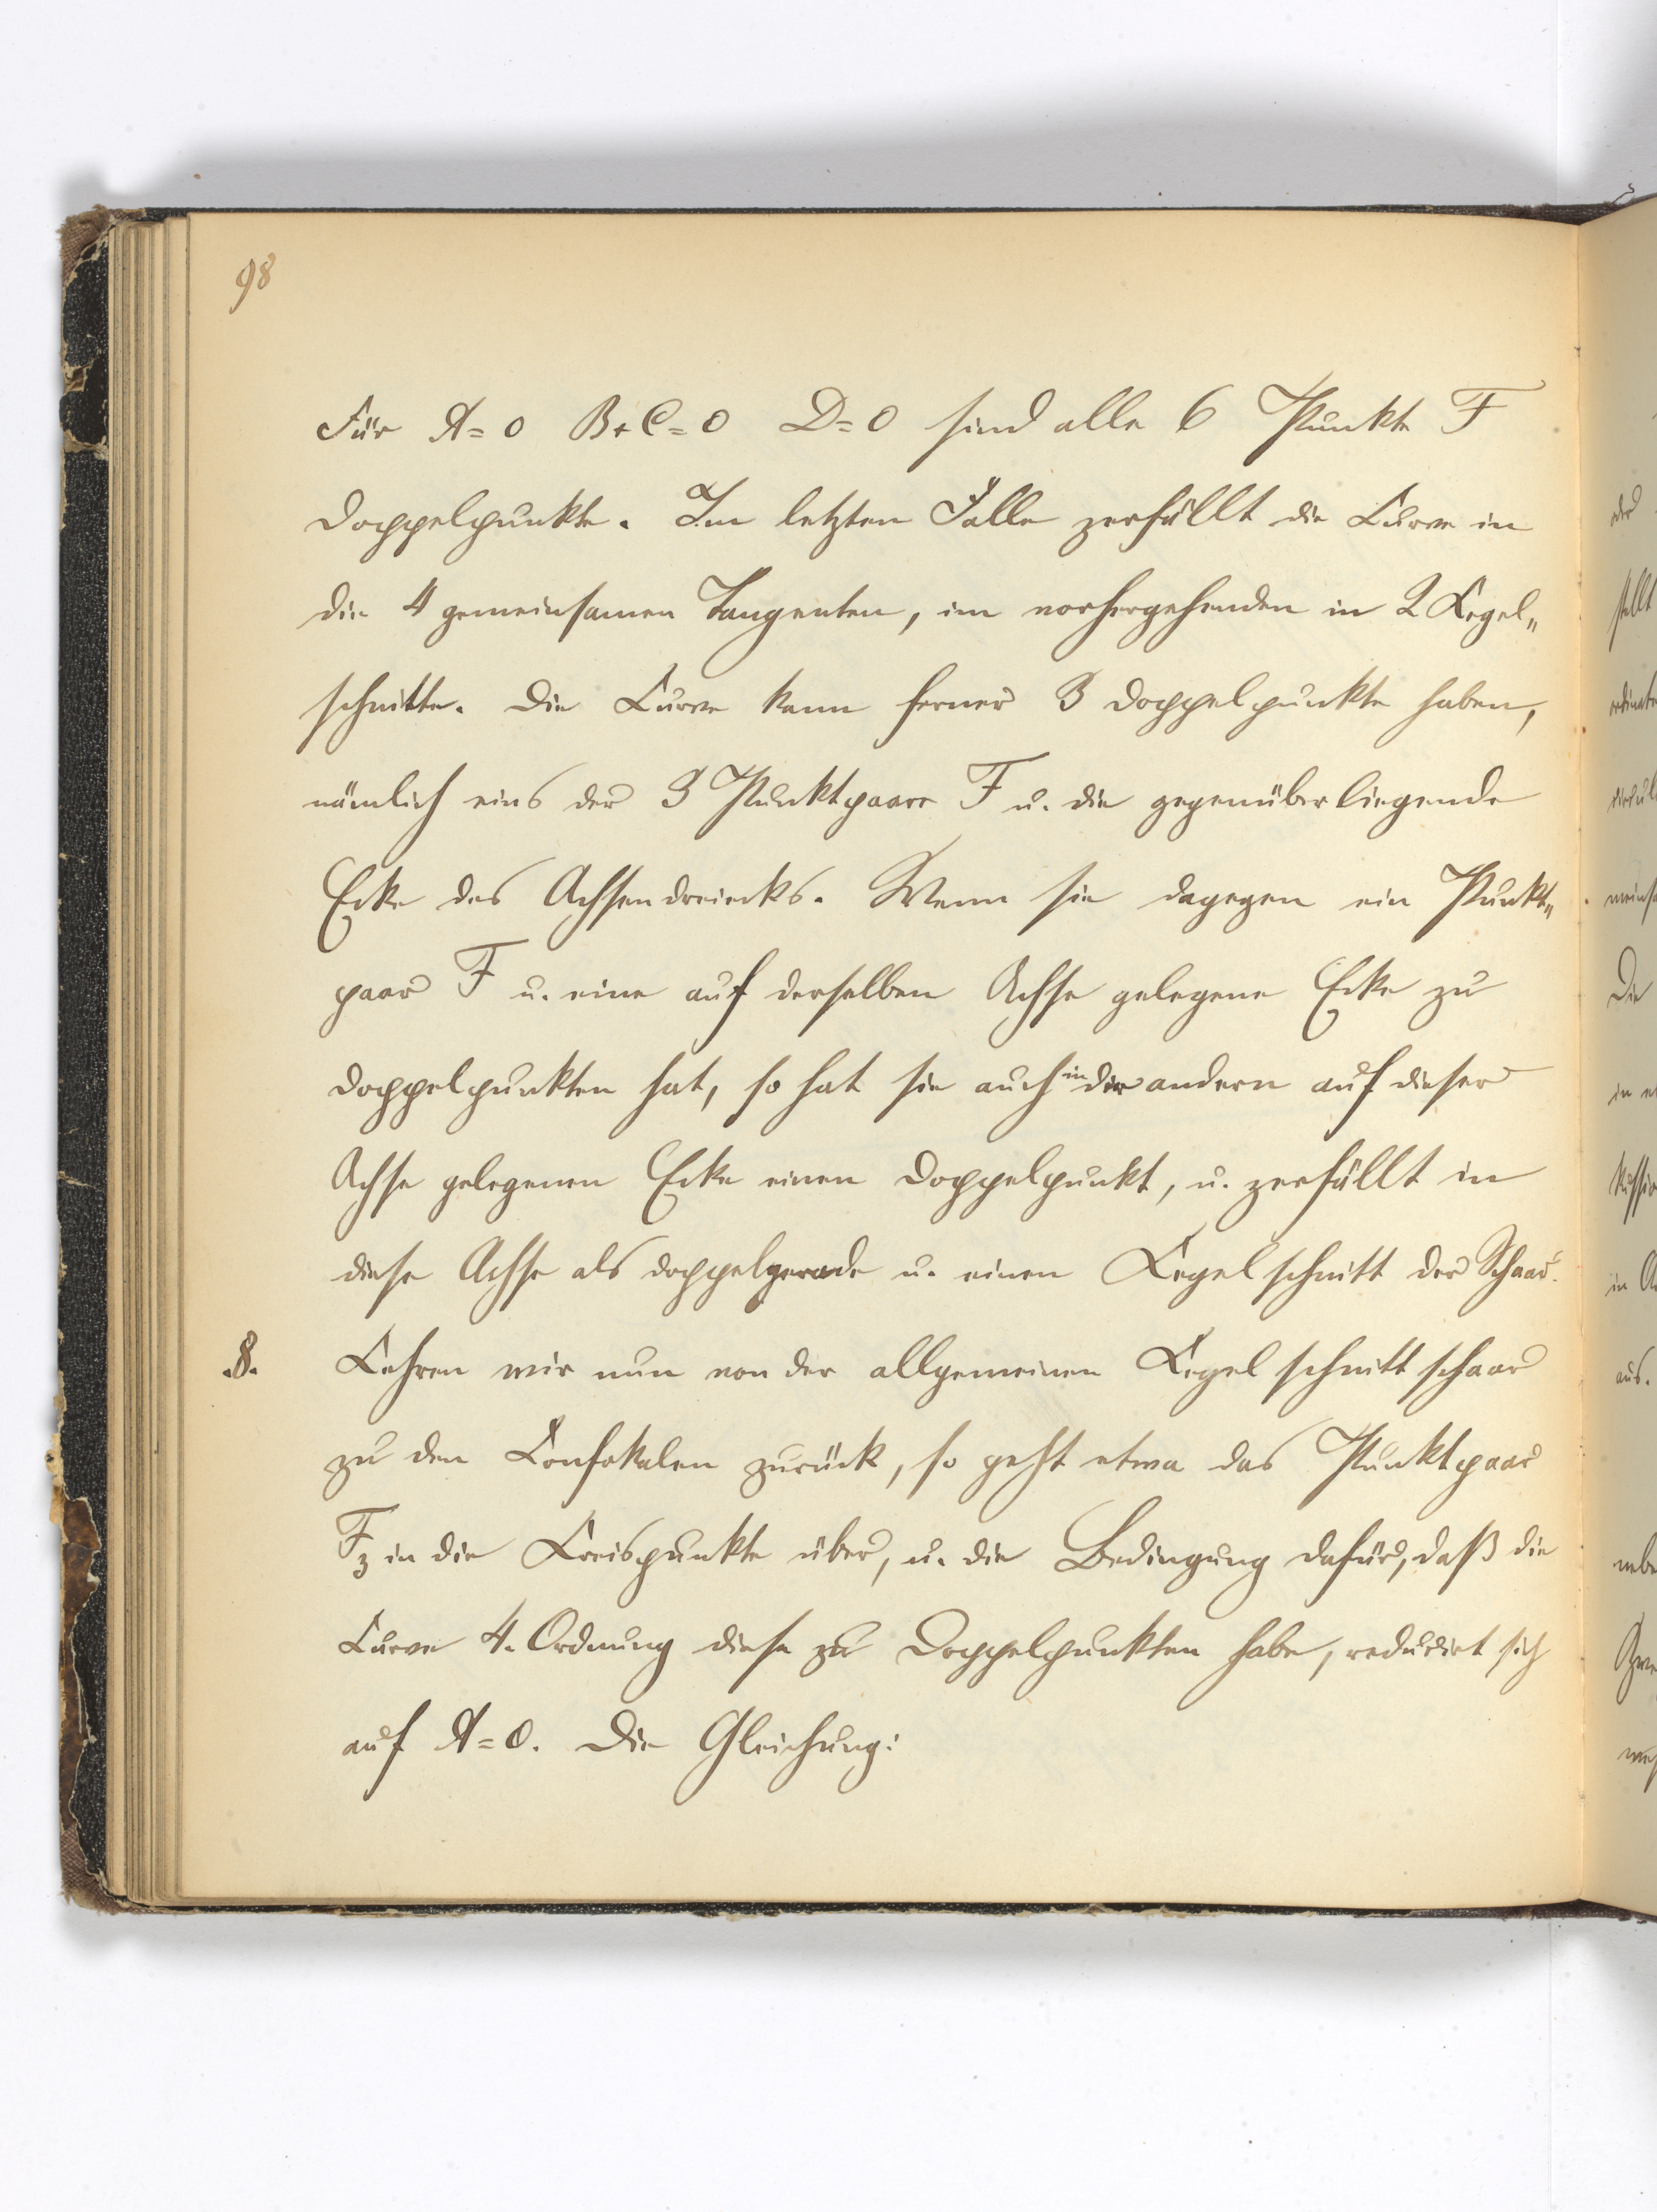 98
Für A=0 B+C=0 D=0 sind alle 6 Punkte F
Doppelpunkte. Im letzten Falle zerfällt die Curve in
die 4 gemeinsamen Tangenten, im vorhergehenden in 2 Kegel„
schnitte. Die Curve kann ferner 3 Doppelpunkte haben,
nämlich eins der 3 Punktpaare F u. die gegenüberliegende
Ecke des Achsendreiecks. Wenn sie dagegen ein Punkt„
paar F u. eine auf derselben Achse gelegene Ecke zu
Doppelpunkten hat, so hat sie auch in der andern auf dieser
Achse gelegenen Ecke einen Doppelpunkt, u. zerfällt in
diese Achse als Doppelgerade u. einen Kegelschnitt der Schaar.
.8. Kehren wir nun von der allgemeinen Kegelschnittschaar
zu den Confokalen zurück, so geht etwa das Punktpaar
F3 in die Kreispunkte über, u. die Bedingung dafür, daß die
Curve 4. Ordnung diese zu Doppelpunkten habe, reducirt sich
auf A=0. Die Gleichung: